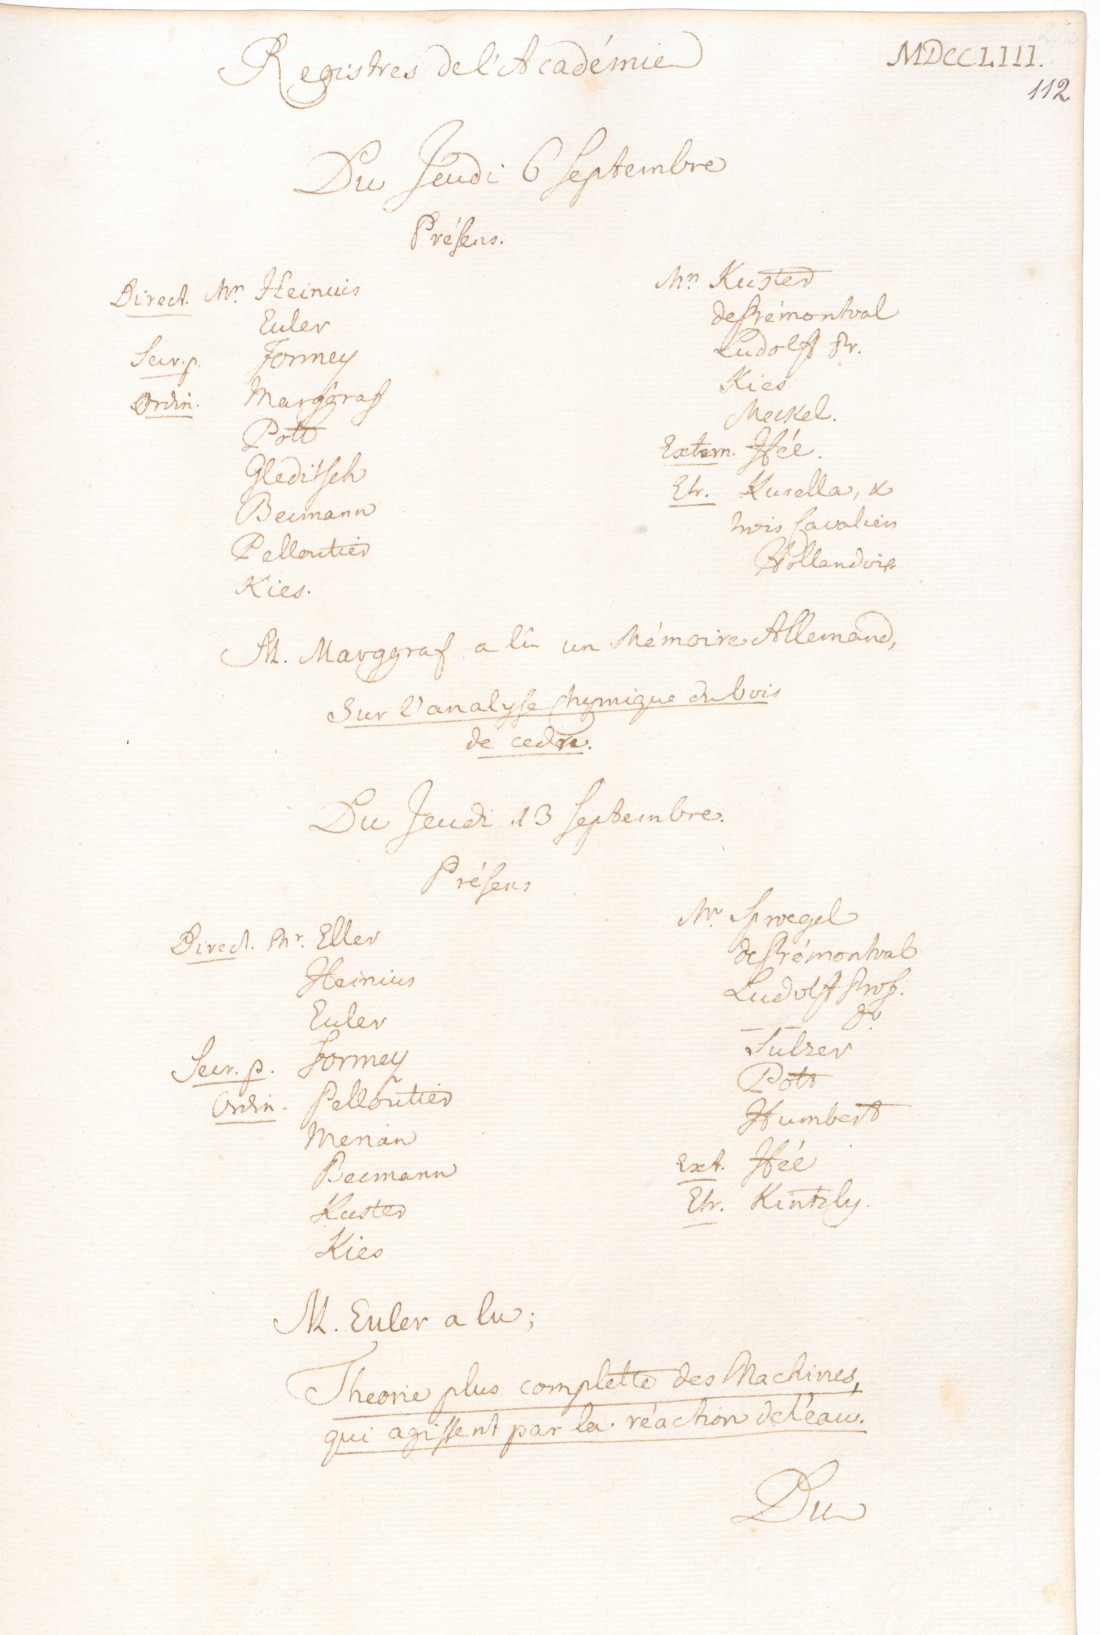 Registres de l'Académie
MDCCLIII.
112
Du Jeudi 6 Septembre
Présens.
Direct. Mrs Heinius
Euler
Secr. p. Formey
Ordin. Marggraf
Pott
Gleditsch
Becmann
Pelloutier
Kies.
Mrs Kuster
de Prémontval
Ludolff Pr.
Kies
Meckel.
Extern. Hée.
Etr. Kusella, &
trois Cavaliers
Hollandois
M. Marggraf a lû un Mémoire Allemand,
Sur l'analyse Chymique du bois
de cedre.
Du Jeudi 13 Septembre.
Présens
Direct. Mr. Eller
Heinius
Euler
Secr. p. Formey
Ordin. Pelloutier
Merian
Becmann
Kuster
Kies
Mr Sprœgel
de Prémontval
Ludolff Prof.
— — Dr
Sulzer
Pott
Humbert
Ext. Hée
Etr. Kintzly.
M. Euler a lu;
Theorie plus complette des Machines,
qui agissent par la réaction de l'eau.
Du